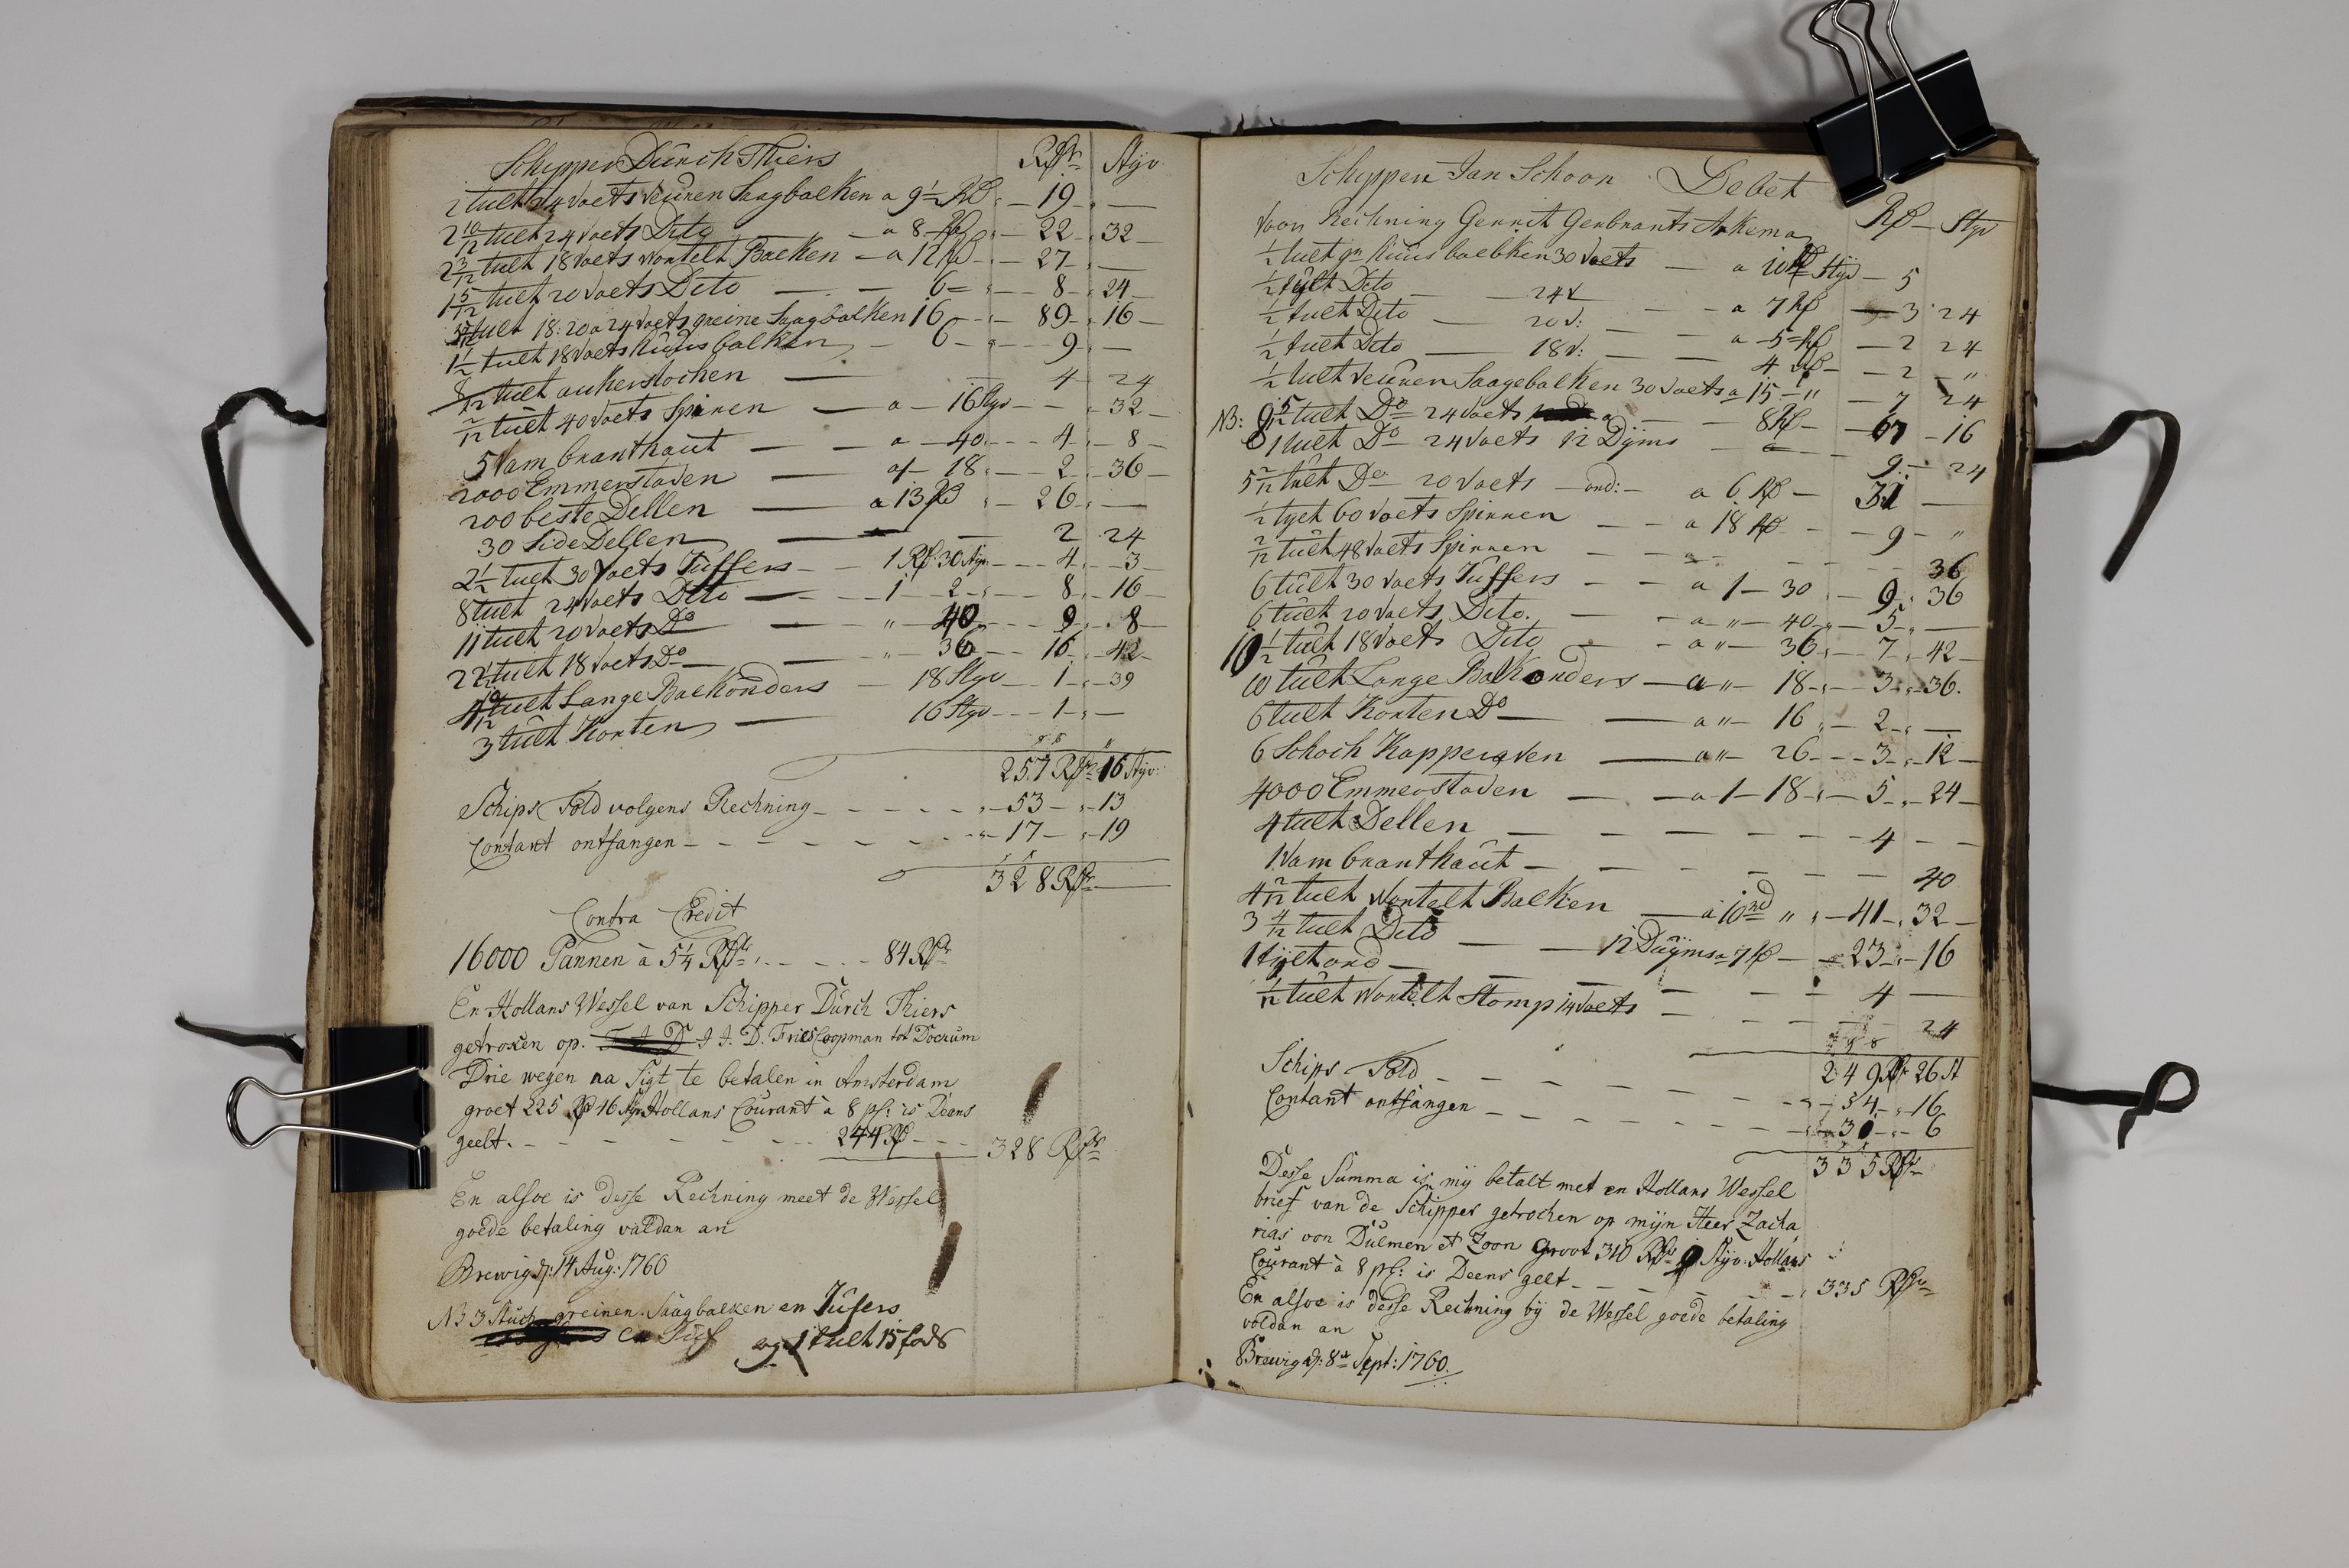 Schypper Dürch Thiers Rdr Styv.
2 tult 24 voets veüren Saagbalken a 9½ Rd 19 —
2 10/12 tult 24 voets Dito a 8 Rd 22 32
2 3/12 tult 18 voets wortelt Balken a 12 Rd 27 —
1 5/12 tult 20 voets Dito 6 8 24
tult 18. 20 a 24 voets greine Saagbalken 16 89 16
1½ tult 18 voets Küüs balken 6 9 —
8/12 tült ankerstochen 4 24
2/12 tült 40 voets Spiren a 16 Styv 32
5 vam branthaüt a 40 4 8
2000 Emmerstaven af 18 2 36
200 beste Dellen a 13 Rd 26 —
30 Side Dellen 2 24
2½ tult 30 voets Tüffers 1 Rd: 30 Styv 4 3
8 tult 24 voets Dito 1 2 8 16
11 tult 20 voets Do " 40 9 8
22½ tult 18 voets Do " 36 16 42
tült Lange Balkonders 18 Styv 1 39
3 tült Korten 16 Styv 1 —
257 Rdr 16 Styv:
Schips Told volgens Rechning 53 13
Contant ontfangen 17 19
328 Rdr
Contra Credit
16000 Pannen à 5¼ Rdr 84 Rdr
En Hollans Wessel van Schipper Dürch Thiers
getroken op. J. D. Fries Coopman tot Dockum
Drie wegen na Sigt te betalen in Amsterdam
groet 225 Rd 16 Styv Hollans Coürant à 8 pf: is Deans
geelt. 244 Rd 328 Rdr
En alsoe is desse Rechning meet de Wessel
goede betaling valdan an
Brewig d: 14 Aug: 1760
NB 3 Stuch greinen Saagbalken en Jüfers
en Jüf og 1 tült 15 fods
Schypper Jan Schoon Debet
Voor Rechning Gerrit Gerbrants Akema Rd Styv
½ tult gr. Küüs balken 30 voets a 10 Rd Styv 5
½ tylt Dito 24 v a 7 Rd 3 24
½ tult Dito 20 v: a 5 Rd 2 24
½ tult Dito 18 v: 4 Rd 2 "
½ tult veüren Saagebalken 30 voets a 15 " 7 24
NB: 9 5/12 tült Do 24 voets a 8 Rd 67 16
1 tült Do 24 voets 12 Dyms 9 24
5 2/12 tült Do 20 voets ond: a 6 Rd 31 —
½ tylt 60 voets Spirren a 18 Rd 9 "
2/12 tült 48 voets Spirren 36
6 tült 30 voets Tüffers a 1 30 9 36
6 tült 20 voets Dito. a " 40 5 —
10½ tült 18 voets Dito a " 36 7 42
10 tült Lange Balkonders a " 18 3 36.
6 tült Korten Do a " 16 2 —
6 Schoch Kapperaven a " 26 3 12
4000 Emmerstaven a 1 18 5 24
4 tült Dellen 4 —
1 vam branthaüt 40
4 2/12 tült Wortelt Balken à 10 Rd " 41 32
3 4/12 tült Dito 12 Düyms a 7 Rd 23 16
1 tylt ond 4 —
1/12 tült Wortelt Stomp 14 voets 24
249 Rdr 26 St
Schips Told 54 16
Contant ontfangen 31 6
335 Rdr
Desse Summa is mij betalt met en Hollans Wessel
brief van de Schipper getrochen op mijn Heer Zacha
rias von Dülmen et Zoon Groot 310 Rdr 9 Styv: Hollans
Coürant à 8 pf: is Deens gelt 335 Rdr
En alsoe is desse Rechning bij de Wessel goede betaling
voldan an
Brewig d: 8te Sept: 1760.